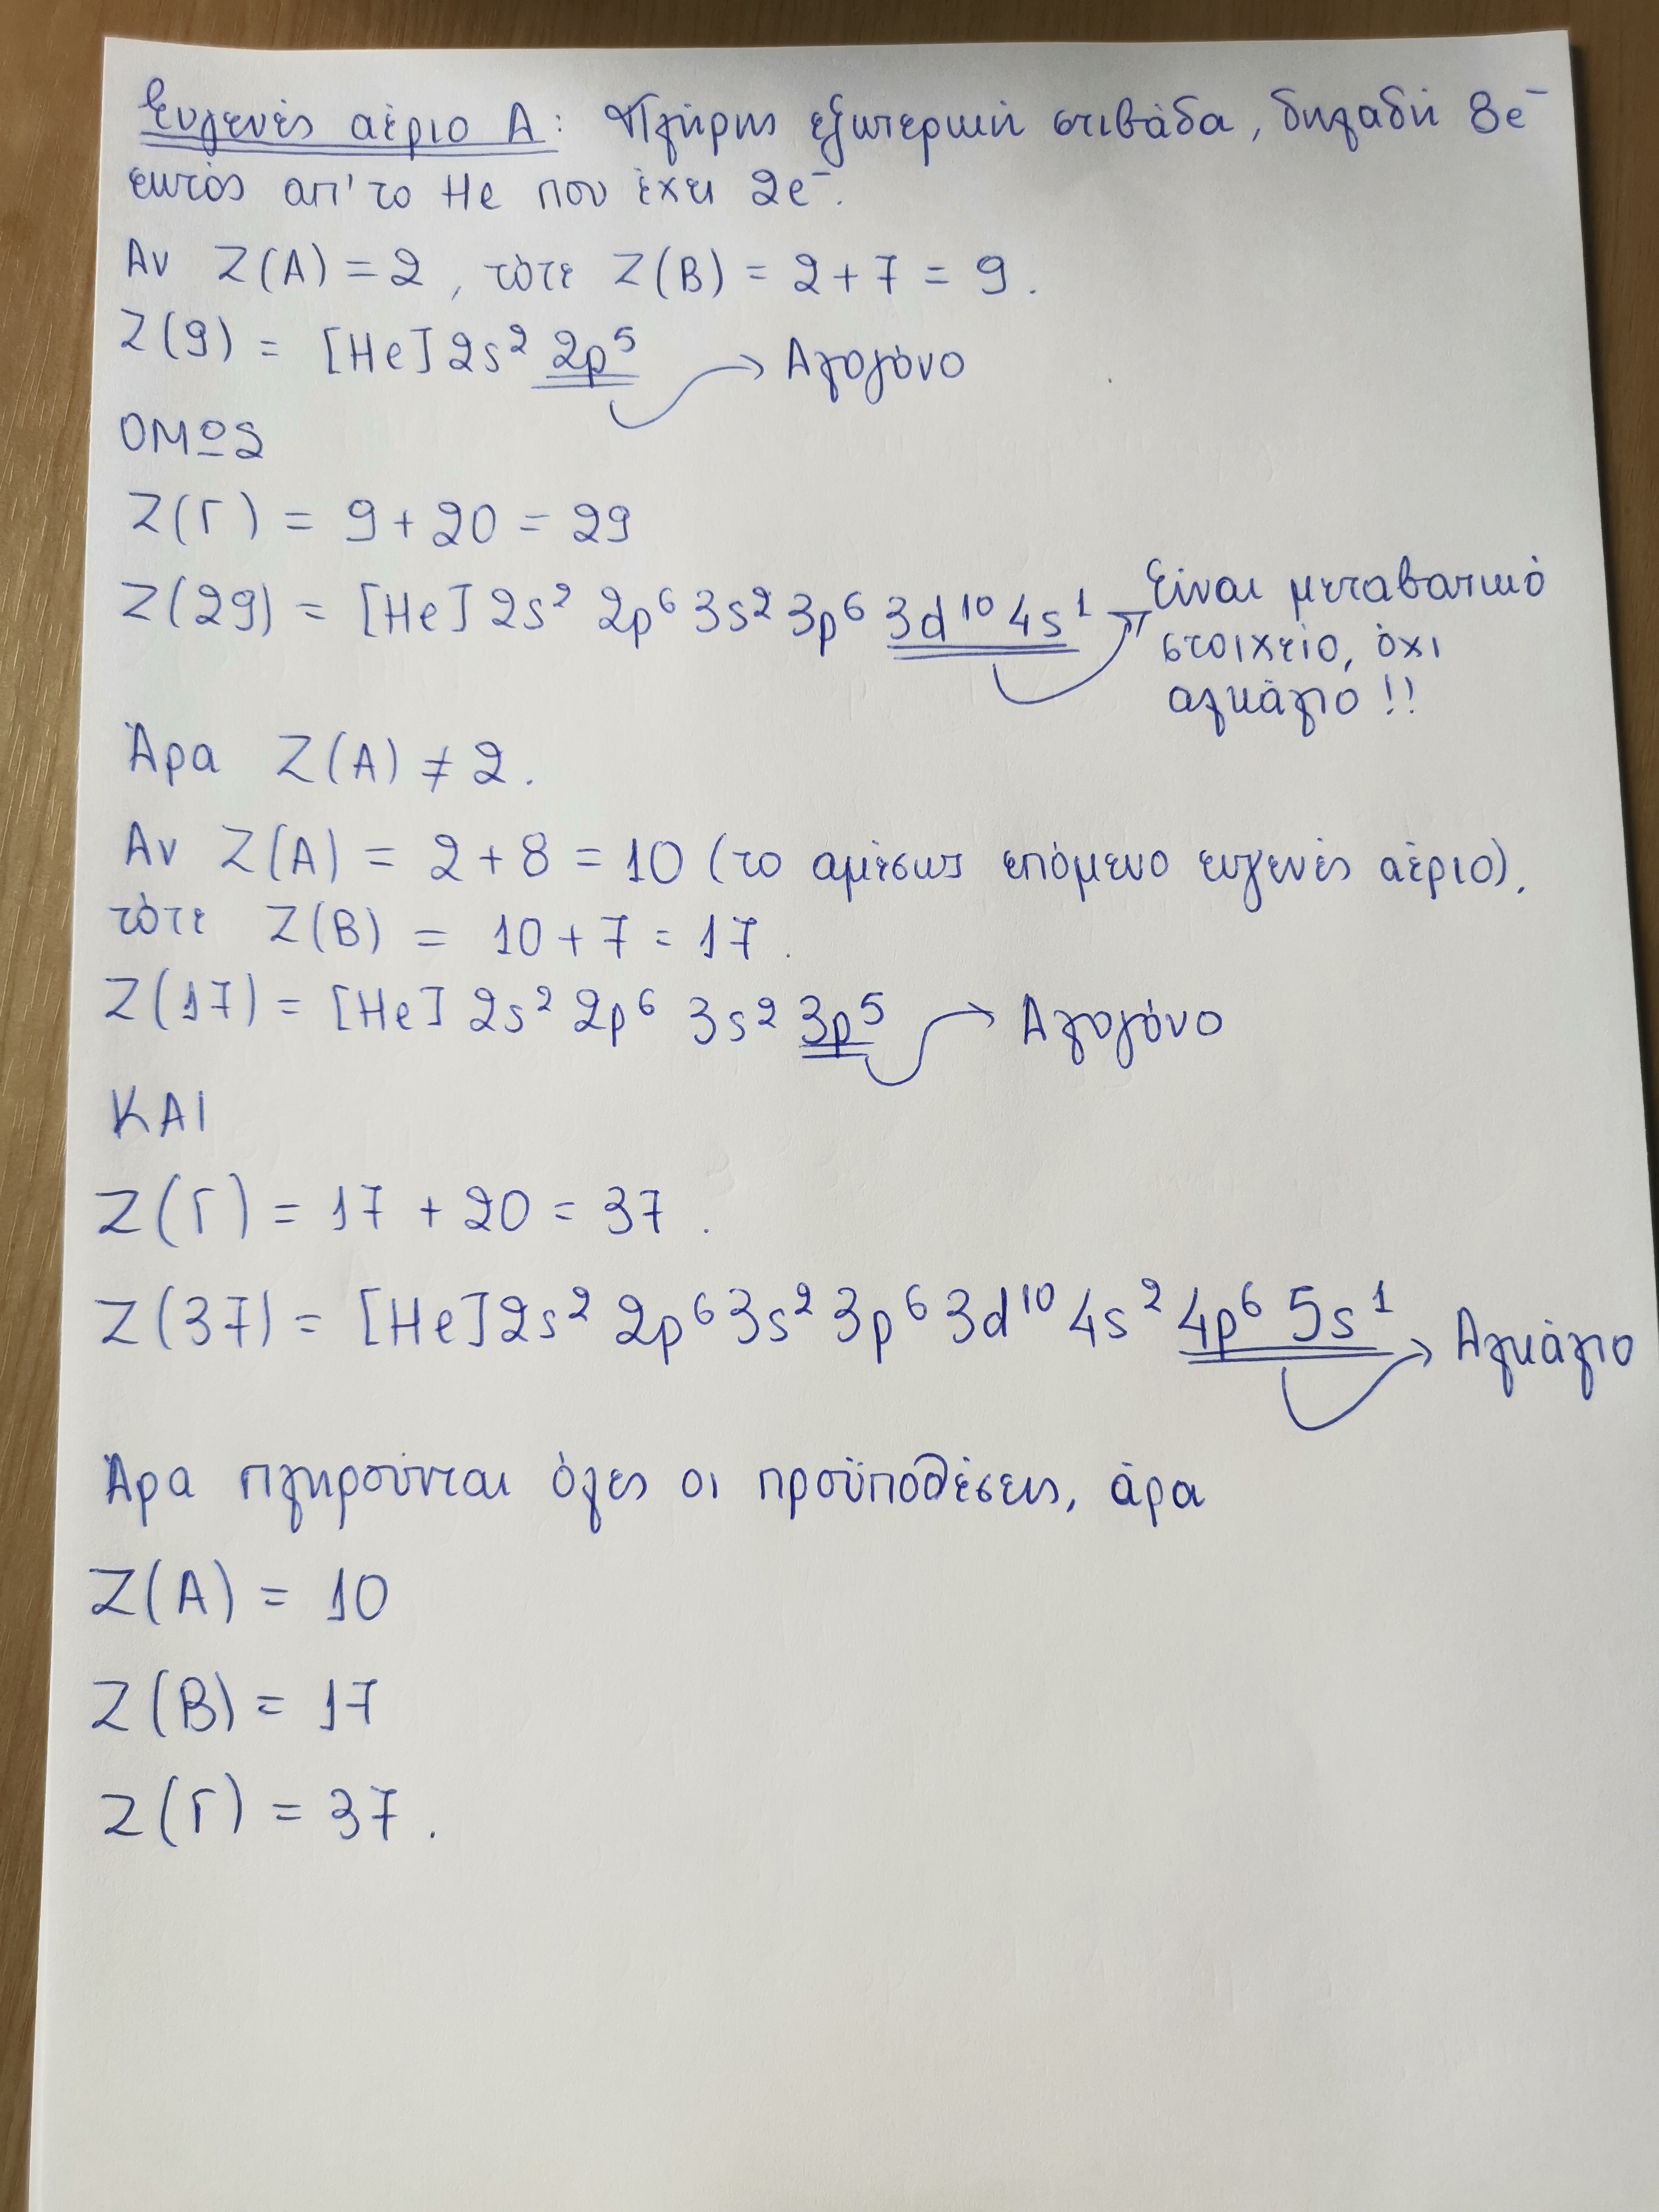 Ευγενές αέριο Α: Πλήρης εξωτερική στιβάδα, δηλαδή 8e⁻
εκτός απ' το He που έχει 2e⁻.
Αν Z(A) = 2, τότε Z(B) = 2 + 7 = 9.
Z(9) = [He] 2s² 2p⁵ → Αλογόνο
ΟΜΩΣ
Z(Γ) = 9 + 20 = 29
Z(29) = [He] 2s² 2p⁶ 3s² 3p⁶ 3d¹⁰ 4s¹ → Είναι μεταβατικό
στοιχείο, όχι
αλκάλιο !!
Άρα Z(A) ≠ 2.
Αν Z(A) = 2 + 8 = 10 (το αμέσως επόμενο ευγενές αέριο),
τότε Z(B) = 10 + 7 = 17.
Z(17) = [He] 2s² 2p⁶ 3s² 3p⁵ → Αλογόνο
ΚΑΙ
Z(Γ) = 17 + 20 = 37.
Z(37) = [He] 2s² 2p⁶ 3s² 3p⁶ 3d¹⁰ 4s² 4p⁶ 5s¹ → Αλκάλιο
Άρα πληρούνται όλες οι προϋποθέσεις, άρα
Z(A) = 10
Z(B) = 17
Z(Γ) = 37.